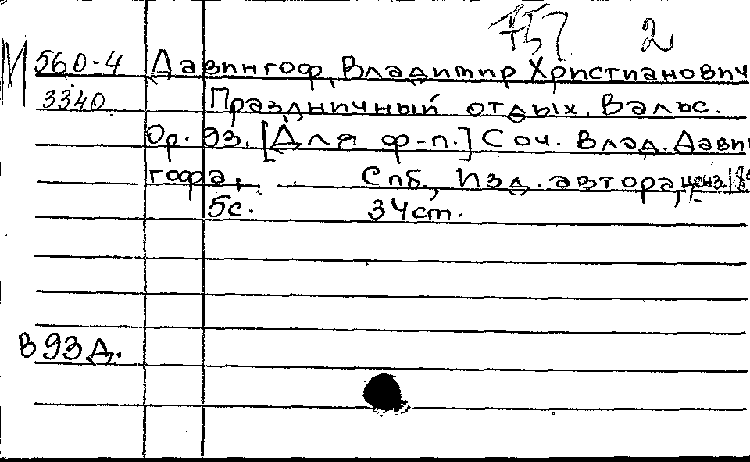 2
М 560-4 Давингоф, Владимир Христианович
3340 Праздничный отдых. Вальс.
Ор. 93. [Для ф-п.] Соч. Влад. Давин
гофа. Спб., Изд. автора,
5с. 34 ст.
В 93 Д.